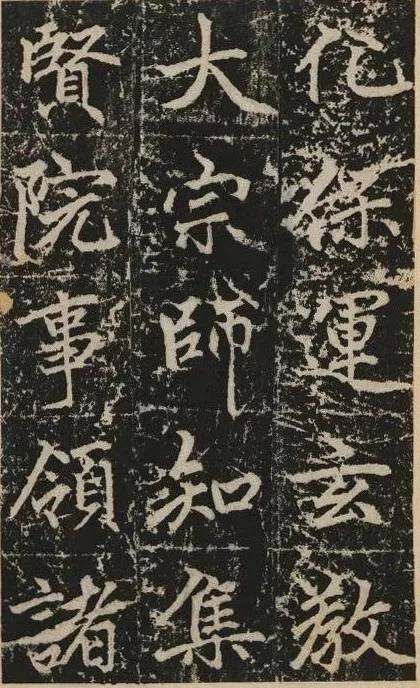 化保運玄教
大宗師知集
賢院事領諸